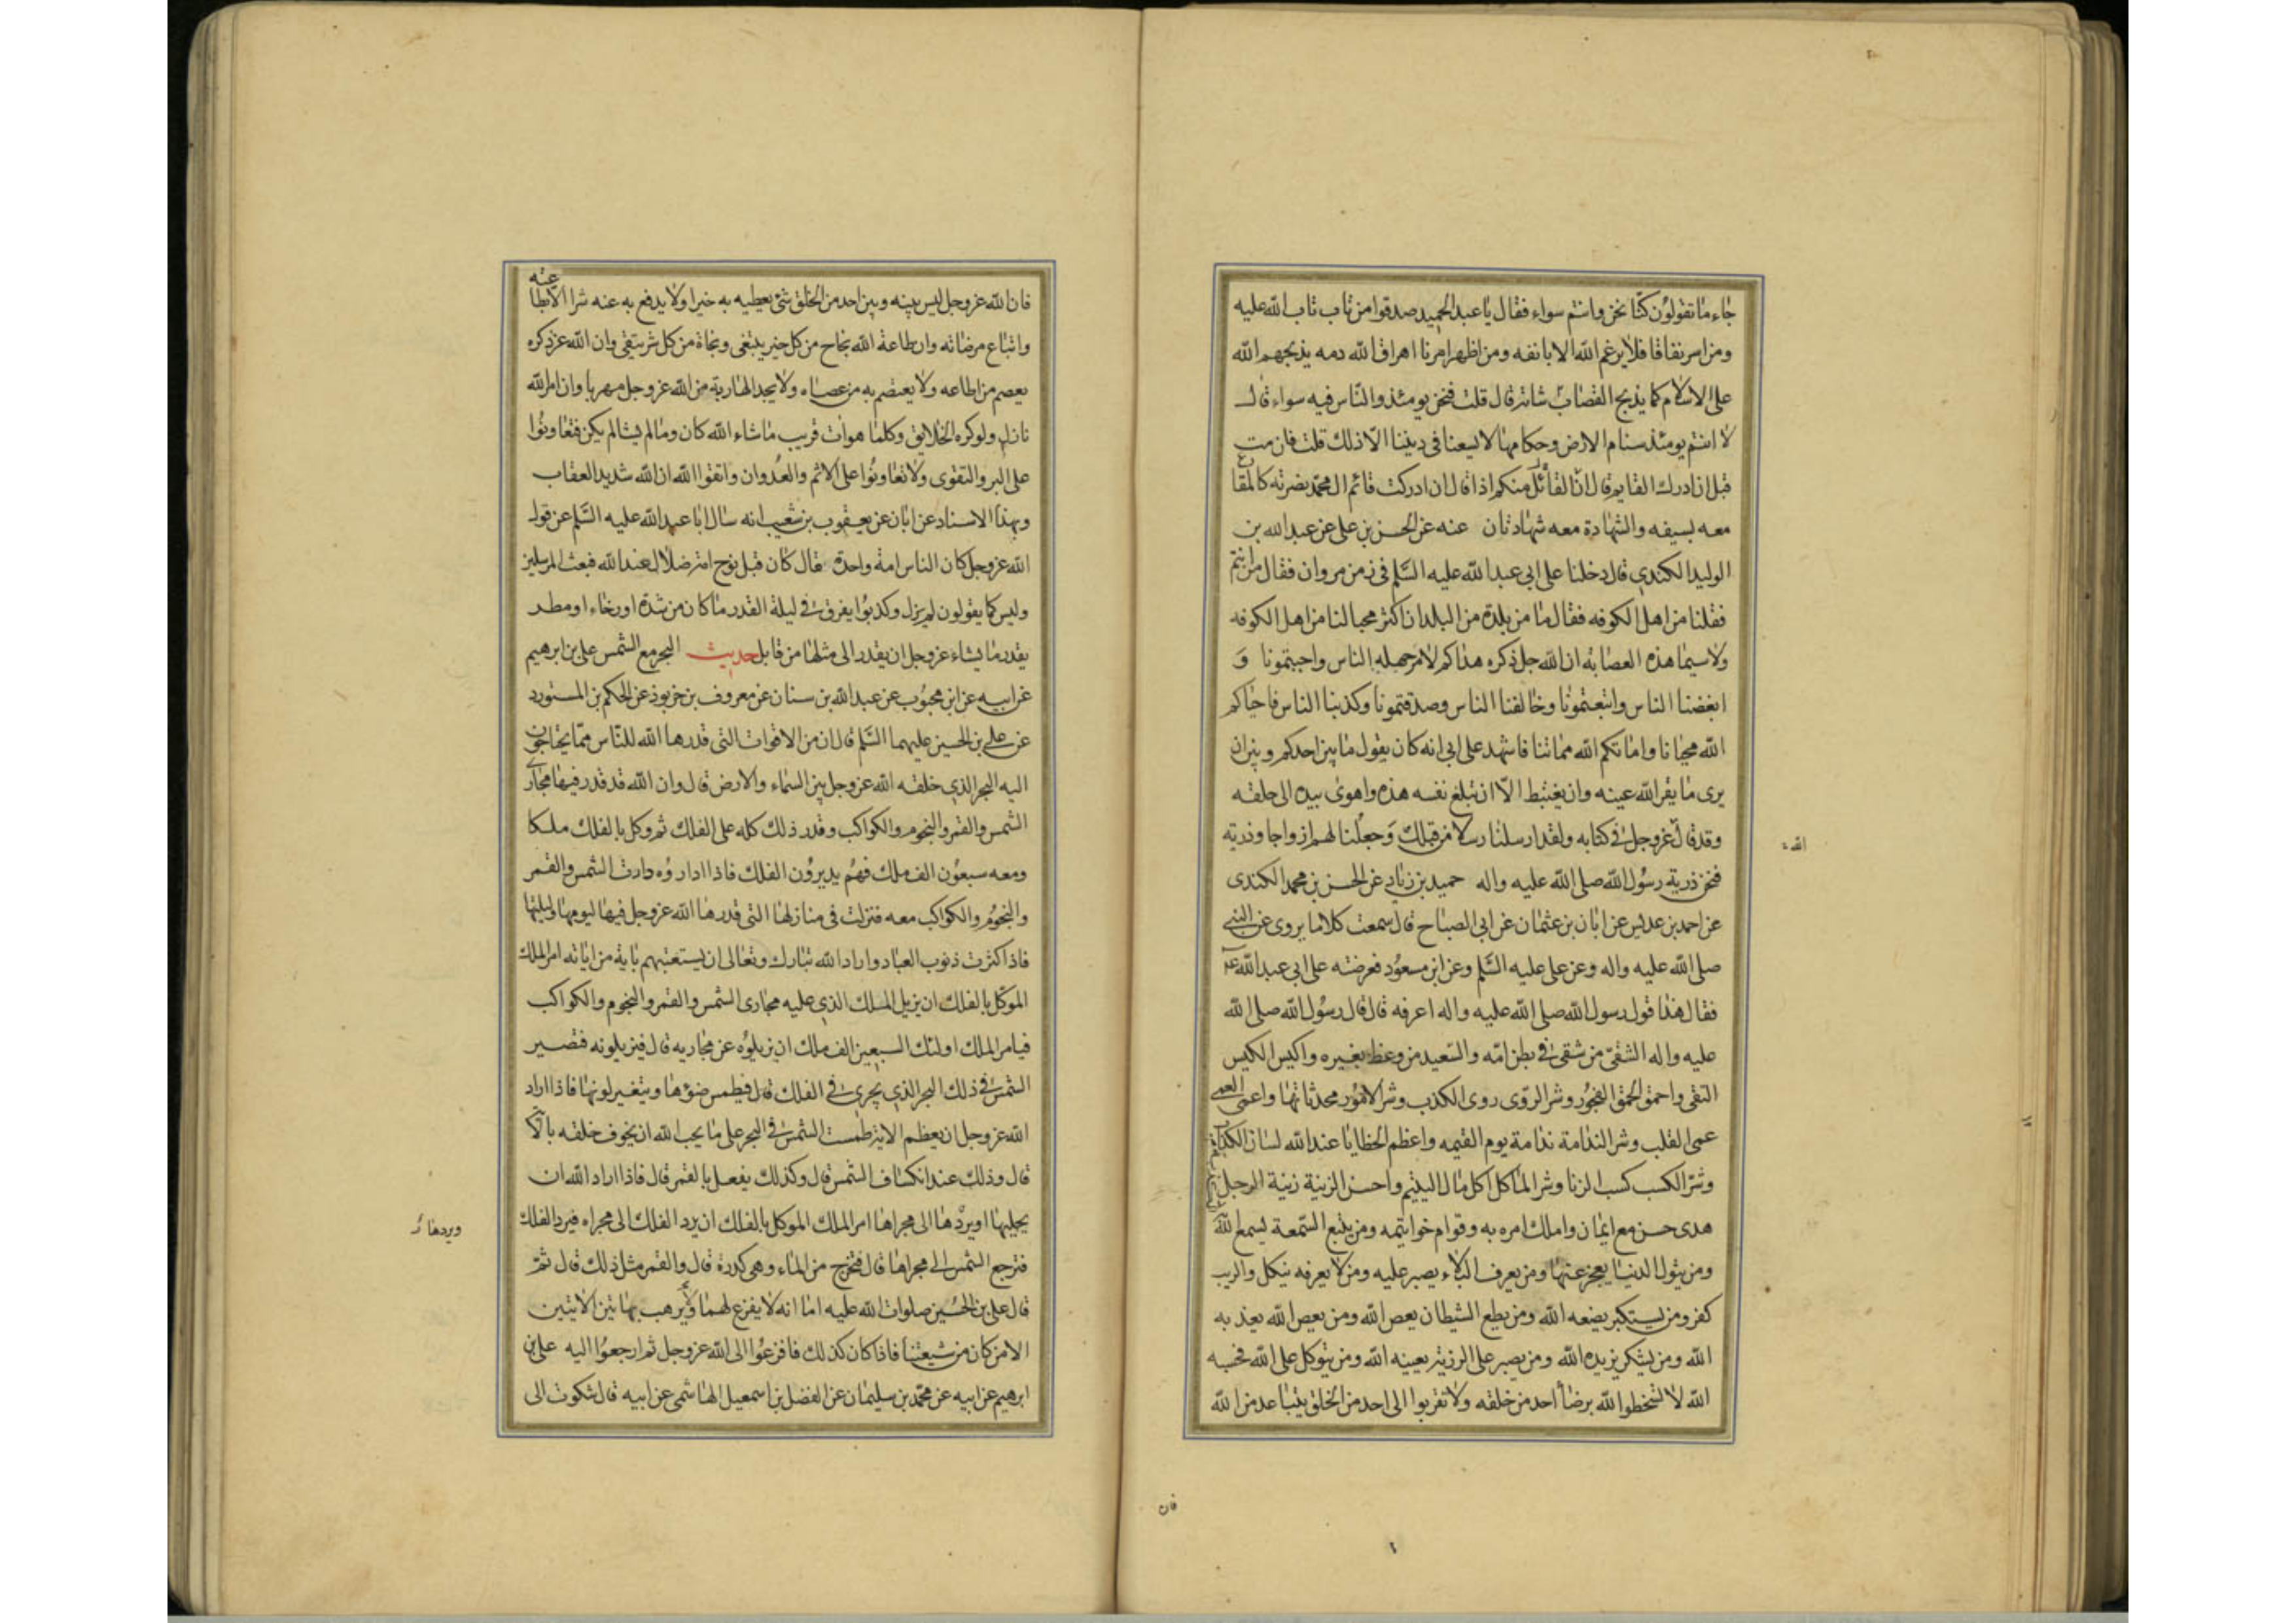 جاء ما تقولون كنا نحن وانتم سواء فقال يا عبد الحميد صدقوا من تاب تاب الله عليه
ومن اسر نفاقا فلا يرغم الله الا بانفه ومن اظهر امرنا اهراق الله دمه يذبحهم الله
على الاسلام كما يذبح القصاب شاته قال قلت فنحن يومئذ والناس فيه سواء قال
لا انتم يومئذ سنام الارض وحكامها لا يسعنا في ديننا الا ذلك قلت فان مت
قبل ان ادرك القايم قال ان القائل منكم اذا قال ان ادركت قائم ال محمد نصرته كالمقارع
معه بسيفه والشهادة معه شهادتان عنه عن الحسن بن علي عن عبد الله بن
الوليد الكندي قال دخلنا على ابي عبد الله عليه السلم في زمن مروان فقال من انتم
فقلنا من اهل الكوفه فقال ما من بلدة من البلدان اكثر محبا لنا من اهل الكوفه
ولا سيما هذه العصابة ان الله جل ذكره هداكم لامر جهله الناس واحببتمونا و
ابغضنا الناس واتبعتمونا وخالفنا الناس وصدقتمونا وكذبنا الناس فاحياكم
الله محيانا واماتكم الله مماتنا فاشهد على ابي انه كان يقول ما بين احدكم وبين ان
يرى ما يقر الله عينه وان يغتبط الا ان تبلغ نفسه هذه واهوى بيده الى حلقه
وقد قال عز وجل في كتابه ولقد ارسلنا رسلا من قبلك وجعلنا لهم ازواجا وذرية
الله
فنحن ذرية رسول الله صلى الله عليه واله حميد بن زياد عن الحسن بن محمد الكندى
عن احمد بن عديس عن ابان بن عثمان عن ابي الصباح قال سمعت كلاما يروى عن النبي
صلى الله عليه واله وعن علي عليه السلم وعن ابن مسعود فعرضته على ابي عبد الله ع
فقال هذا قول رسول الله صلى الله عليه واله اعرفه قال قال رسول الله صلى الله
عليه واله الشقي من شقي في بطن امه والسعيد من وعظ بغيره واكيس الكيس
التقى واحمق الحمق الفجور وشر الروى روى الكذب وشر الامور محدثاتها واعمى العمى
عمى القلب وشر الندامة ندامة يوم القيمه واعظم الخطايا عند الله لسان الكذاب
وشر الكسب كسب الزنا وشر الماكل اكل مال اليتيم واحسن الزينة زينة الرجل
هدى حسن مع ايمان واملك امره به وقوام خواتيمه ومن يتبع السمعة يسمع الله
ومن يتول الدنيا يعجز عنها ومن يعرف البلاء يصبر عليه ومن لا يعرفه ينكل والريب
كفر ومن يستكبر يضعه الله ومن يطع الشيطان يعص الله ومن يعص الله يعذبه
الله ومن يشكر يزيده الله ومن يصبر على الرزية يعينه الله ومن يتوكل على الله فحسبه
الله لا تسخطوا الله برضا احد من خلقه ولا تقربوا الى احد من الخلق بتباعد من الله
فان
فان الله عز وجل ليس بينه وبين احد من الخلق شئ يعطيه به خيرا ولا يدفع به عنه شرا الا بطاعته
واتباع مرضاته وان طاعة الله نجاح من كل خير يبتغى ونجاة من كل شر يتقى وان الله عز ذكره
يعصم من اطاعه ولا يعتصم به من عصاه ولا يجد الهارب من الله عز وجل مهربا وان امر الله
نازل ولو كره الخلايق وكلما هو ات قريب ما شاء الله كان وما لم يشا لم يكن فتعاونوا
على البر والتقوى ولا تعاونوا على الاثم والعدوان واتقوا الله ان الله شديد العقاب
وبهذا الاسناد عن ابان عن يعقوب بن شعيب انه سال ابا عبد الله عليه السلم عن قول
الله عز وجل كان الناس امة واحدة فقال كان قبل نوح امة ضلال عند الله فبعث المرسلين
وليس كما يقولون لم يزل وكذبوا يفرق في ليلة القدر ما كان من شدة او رخاء او مطر
يقدر ما يشاء عز وجل ان يقدر الى مثلها من قابل حديث البحر مع الشمس علي بن ابرهيم
عن ابيه عن ابن محبوب عن عبد الله بن سنان عن معروف بن خربوذ عن الحكم بن المستورد
عن علي بن الحسين عليهما السلم قال ان من الاقوات التى قدرها الله للناس مما يحتاجون
اليه البحر الذي خلقه الله عز وجل بين السماء والارض قال وان الله قد قدر فيها مجارى
الشمس والقمر والنجوم والكواكب وقدر ذلك كله على الفلك ثم وكل بالفلك ملكا
ومعه سبعون الف ملك فهم يديرون الفلك فاذا اداروه دارت الشمس والقمر
والنجوم والكواكب معه فنزلت في منازلها التى قدرها الله عز وجل فيها ليومها وليلتها
فاذا كثرت ذنوب العباد واراد الله تبارك وتعالى ان يستعتبهم باية من اياته امر الملك
الموكل بالفلك ان يزيل الملك الذي عليه مجارى الشمس والقمر والنجوم والكواكب
فيامر الملك اولئك السبعين الف ملك ان يزيلوه عن مجاريه قال فيزيلونه فتصير
الشمس في ذلك البحر الذي يجرى في الفلك قال فيطمس ضوءها ويتغير لونها فاذا اراد
الله عز وجل ان يعظم الاية طمست الشمس في البحر على ما يحب الله ان يخوف خلقه بالاية
قال وذلك عند انكساف الشمس قال وكذلك يفعل بالقمر قال فاذا اراد الله ان
يجليها او يردها الى مجراها امر الملك الموكل بالفلك ان يرد الفلك الى مجراه فيرد الفلك
ويردها
فترجع الشمس الى مجراها قال فتخرج من الماء وهي كدرة قال والقمر مثل ذلك قال ثم
قال علي بن الحسين صلوات الله عليه اما انه لا يفزع لهما ولا يرهب بهاتين الايتين
الا من كان من شيعتنا فاذا كان كذلك فافزعوا الى الله عز وجل ثم ارجعوا اليه علي بن
ابرهيم عن ابيه عن محمد بن سليمان عن الفضل بن اسمعيل الهاشمى عن ابيه قال شكوت الى